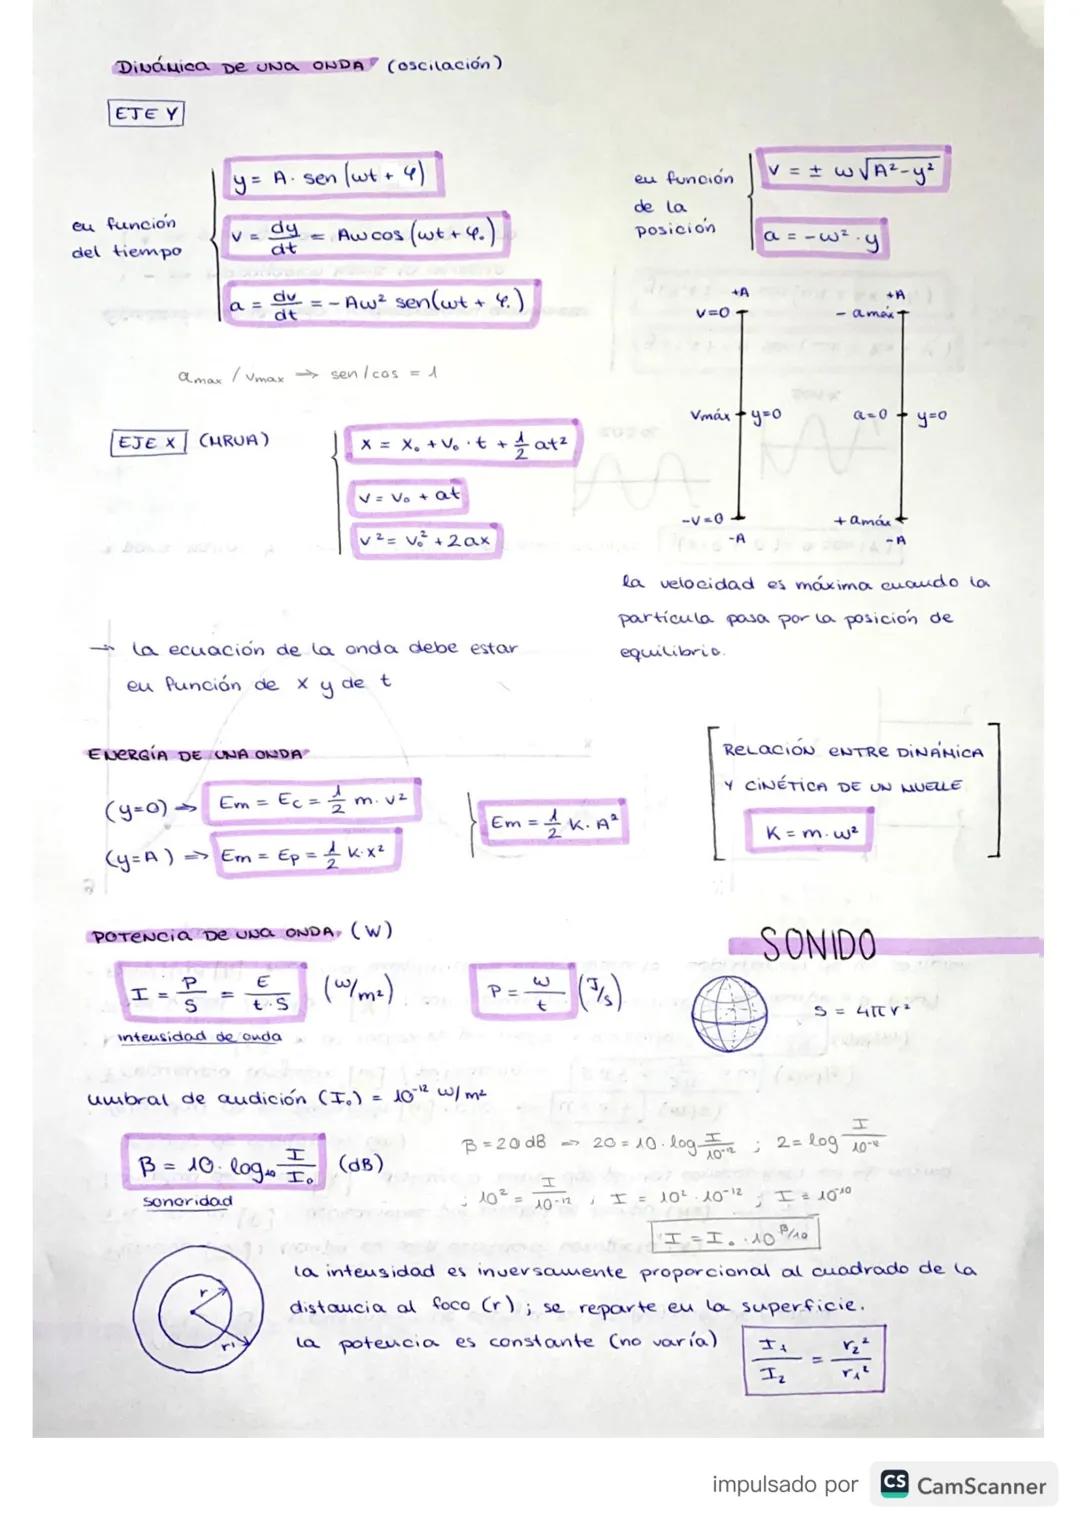 DINÁMICA DE UNA ONDA (oscilación)
EJE Y
en función
del tiempo
y = A · sen (wt + φ)
v = dy/dt = Aw cos (wt + φ₀)
a = dv/dt = - Aw² sen(wt + φ₀)
en función
de la
posición
v = ± w √A²-y²
a = -w² · y
amax / Vmax → sen/cos = 1
+A
v=0
Vmáx y=0
-v=0
-A
+A
- amáx
a=0 y=0
+ amáx
-A
EJE X (MRUA)
x = x₀ + v₀ · t + 1/2 at²
v = v₀ + at
v² = v₀² + 2ax
la velocidad es máxima cuando la
partícula pasa por la posición de
equilibrio.
→ la ecuación de la onda debe estar
en función de x y de t
ENERGÍA DE UNA ONDA
(y=0) → Em = Ec = 1/2 m · v²
(y=A) → Em = Ep = 1/2 K · x²
Em = 1/2 K · A²
RELACIÓN ENTRE DINÁMICA
Y CINÉTICA DE UN MUELLE
K = m · w²
POTENCIA DE UNA ONDA (W)
I = P/S = E/t·S (w/m²)
intensidad de onda
P = w/t (J/s)
SONIDO
S = 4πr²
umbral de audición (I₀) = 10⁻¹² w/m²
β = 10 · log₁₀ I/I₀ (dB)
sonoridad
β = 20 dB → 20 = 10 · log I/10⁻¹² ; 2 = log I/10⁻¹²
; 10² = I/10⁻¹² , I = 10² · 10⁻¹² ; I = 10⁻¹⁰
I = I₀ · 10^β/10
r
r'
la intensidad es inversamente proporcional al cuadrado de la
distancia al foco (r) ; se reparte en la superficie.
la potencia es constante (no varía)
I₁/I₂ = r₂²/r₁²
impulsado por CS CamScanner